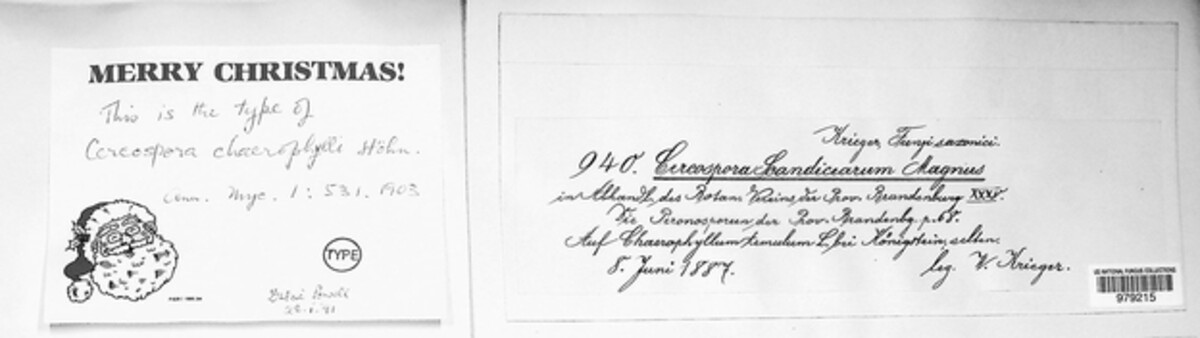 MERRY CHRISTMAS!
This is the type of
Cercospora chaerophylli Höhn.
Ann. Myc. 1: 531. 1903
TYPE
Krieger, Fungi saxonici.
940. Cercospora Magnus
in Abhandl. des Botan. Vereins der Prov. Brandenburg XXXI.
Die Peronosporeen der Prov. Brandenbg. p. 68.
Auf Chaerophyllum temulum L. bei Königstein, selten.
8. Juni 1887.
leg. W. Krieger.
US NATIONAL FUNGUS COLLECTIONS
979215